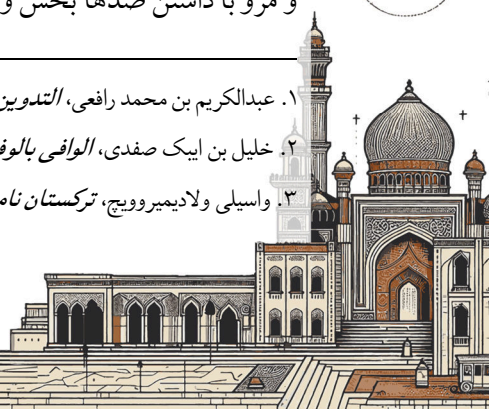 و مرو با داشتن صدها بخش و
۱. عبدالکریم بن محمد رافعی، التدوین
۲. خلیل بن ایبک صفدی، الوافی بالوف
۳. واسیلی ولادیمیروویچ، ترکستان نام